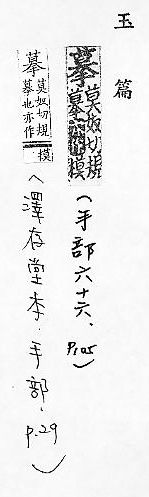 玉篇
摹
莫奴切規
模
(手部六十六、P.105)
摹
莫奴切規
摹也亦作
模
(澤存堂本.手部.p.29)